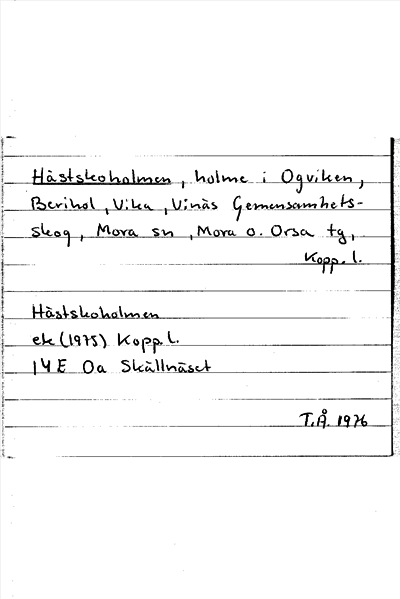 Hästskoholmen, holme i Ogviken,
Berihol, Vika, Vinäs Gemensamhets-
skog, Mora sn, Mora o. Orsa tg,
Kopp. l.
Hästskoholmen
ek (1975) Kopp. l.
14E 0a Skällnäset
T.Å. 1976